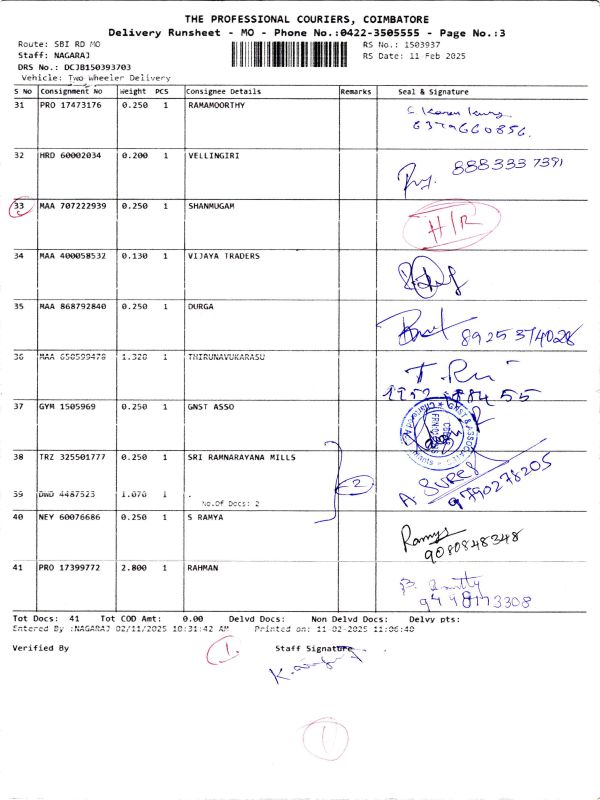 THE PROFESSIONAL COURIERS, COIMBATORE
Delivery Runsheet - MO - Phone No.:0422-3505555 - Page No.:3
Route: SBI RD MO RS No.: 1503937
Staff: NAGARAJ RS Date: 11-Feb 2025
DRS No.: DCJB150393703
Vehicle: Two Wheeler Delivery
S No Consignment No Weight PCS Consignee Details Remarks Seal & Signature
31 PRO 17473176 0.250 1 RAMAMOORTHY
6379660856.
32 HRD 60002034 0.200 1 VELLINGIRI
888333 7391
33 MAA 707222939 0.250 1 SHANMUGAM H/R
34 MAA 400058532 0.130 1 VIJAYA TRADERS
35 MAA 868792840 0.250 1 DURGA
89253 74028
36 MAA 650599478 1.320 1 THIRUNAVUKARASU
37 GYM 1505969 0.250 1 GNST ASSO
38 TRZ 325501777 0.250 1 SRI RAMNARAYANA MILLS
2
39 DWD 4487523 1.070 1 .
No.Of Docs: 2
9790278205
40 NEY 60076686 0.250 1 S RAMYA
Ramya
9080848348
41 PRO 17399772 2.800 1 RAHMAN
9498173308
Tot Docs: 41 Tot COD Amt: 0.00 Delvd Docs: Non Delvd Docs: Delvy pts:
Entered By :NAGARAJ 02/11/2025 10:31:42 AM Printed on: 11-02-2025 11:06:40
Verified By 1. Staff Signature
1